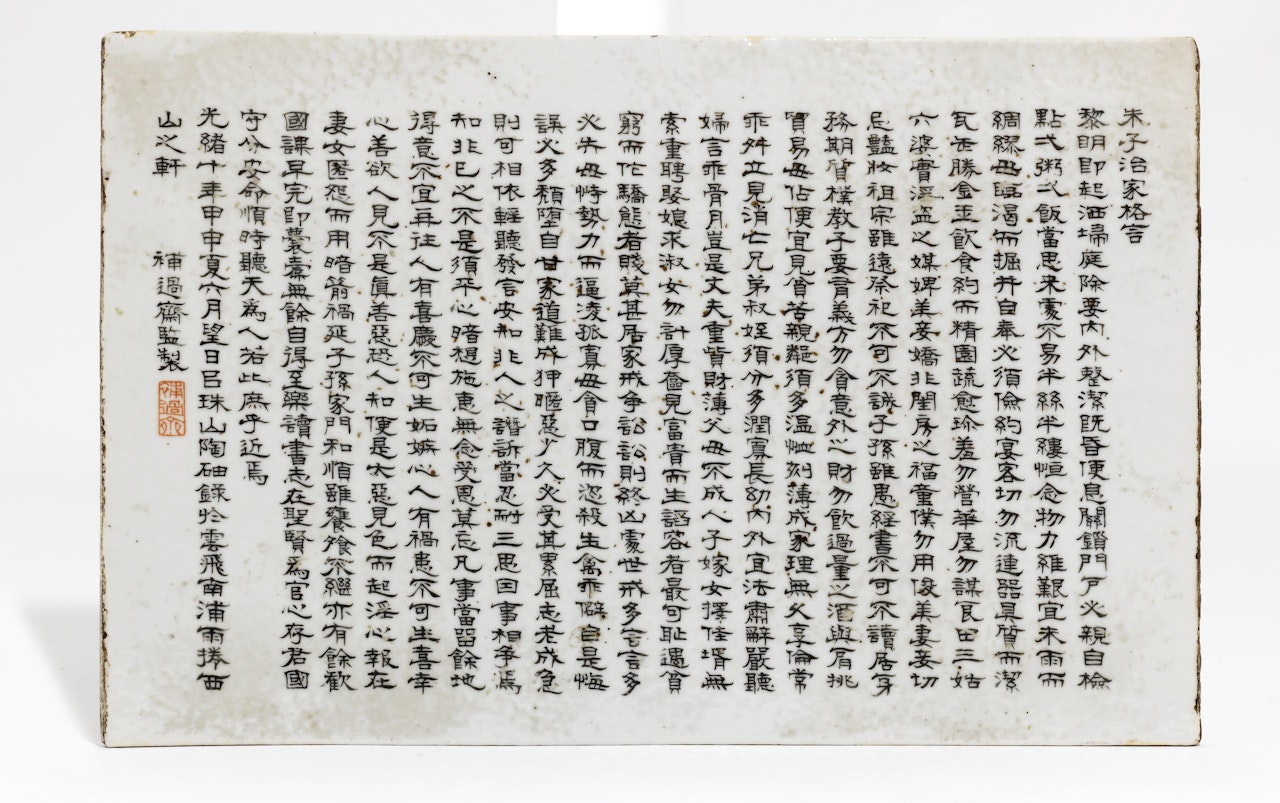 朱子治家格言
黎明即起洒埽庭除要內外整潔既昏便息關鎖門戶必親自檢
點弌粥弌飯當思來處不易半絲半縷恒念物力維艱宜未雨而
綢繆毋臨渴而掘井自奉必須儉約宴客切勿流連器具質而潔
瓦缶勝金玉飲食約而精園蔬愈珍羞勿營華屋勿謀良田三姑
六婆實淫盜之媒婢美妾嬌非閨房之福童僕勿用俊美妻妾切
忌豔妝祖宗雖遠祭祀不可不誠子孫雖愚經書不可不讀居身
務期質樸教子要有義方勿貪意外之財勿飲過量之酒與肩挑
貿易毋佔便宜見貧苦親鄰須多溫恤刻薄成家理無久享倫常
乖舛立見消亡兄弟叔姪須分多潤寡長幼內外宜法肅辭嚴聽
婦言乖骨月豈是丈夫重貲財薄父母不成人子嫁女擇佳壻無
索重聘娶媳求淑女勿計厚奩見富貴而生諂容者最可恥遇貧
窮而作驕態者賤莫甚居家戒爭訟訟則終凶處世戒多言言多
必失毋恃勢力而逼淩孤寡毋貪口腹而恣殺生禽乖僻自是悔
誤必多頹墮自甘家道難成狎暱惡少久必受其累屈志老成急
則可相依輕聽發言安知非人之譖訴當忍耐三思因事相爭焉
知非己之不是須平心暗想施惠無念受恩莫忘凡事當留餘地
得意不宜再往人有喜慶不可生妬嫉心人有禍患不可生喜幸
心善欲人見不是真善惡恐人知便是大惡見色而起淫心報在
妻女匿怨而用暗箭禍延子孫家門和順雖饔飧不繼亦有餘歡
國課早完即囊橐無餘自得至樂讀書志在聖賢為官心存君國
守分安命順時聽天為人若此庶乎近焉
光緒十年甲申夏六月望日呂珠山陶砷錄於雲飛南浦雨捲西
山之軒　　補過齋監製